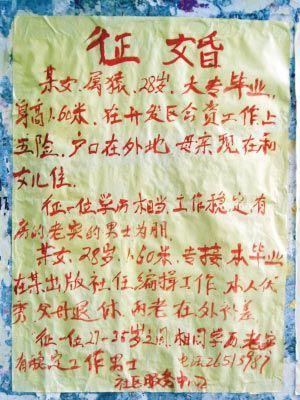 征 婚
某女.属猿.28岁.大专毕业,
身高1.60米.在开发区合资工作上
五险.户口在外地.母亲现在和
女儿住.
征一位学历相当.工作稳定.有
房的老实的男士为朋.
某女.28岁.1.60米.专接本毕业
在某出版社任编辑工作.本人优
秀.父母退休.两老在外
征一位27-35岁之间.相同学历.老实
有稳定工作男士 电话26515987
社区服务中心